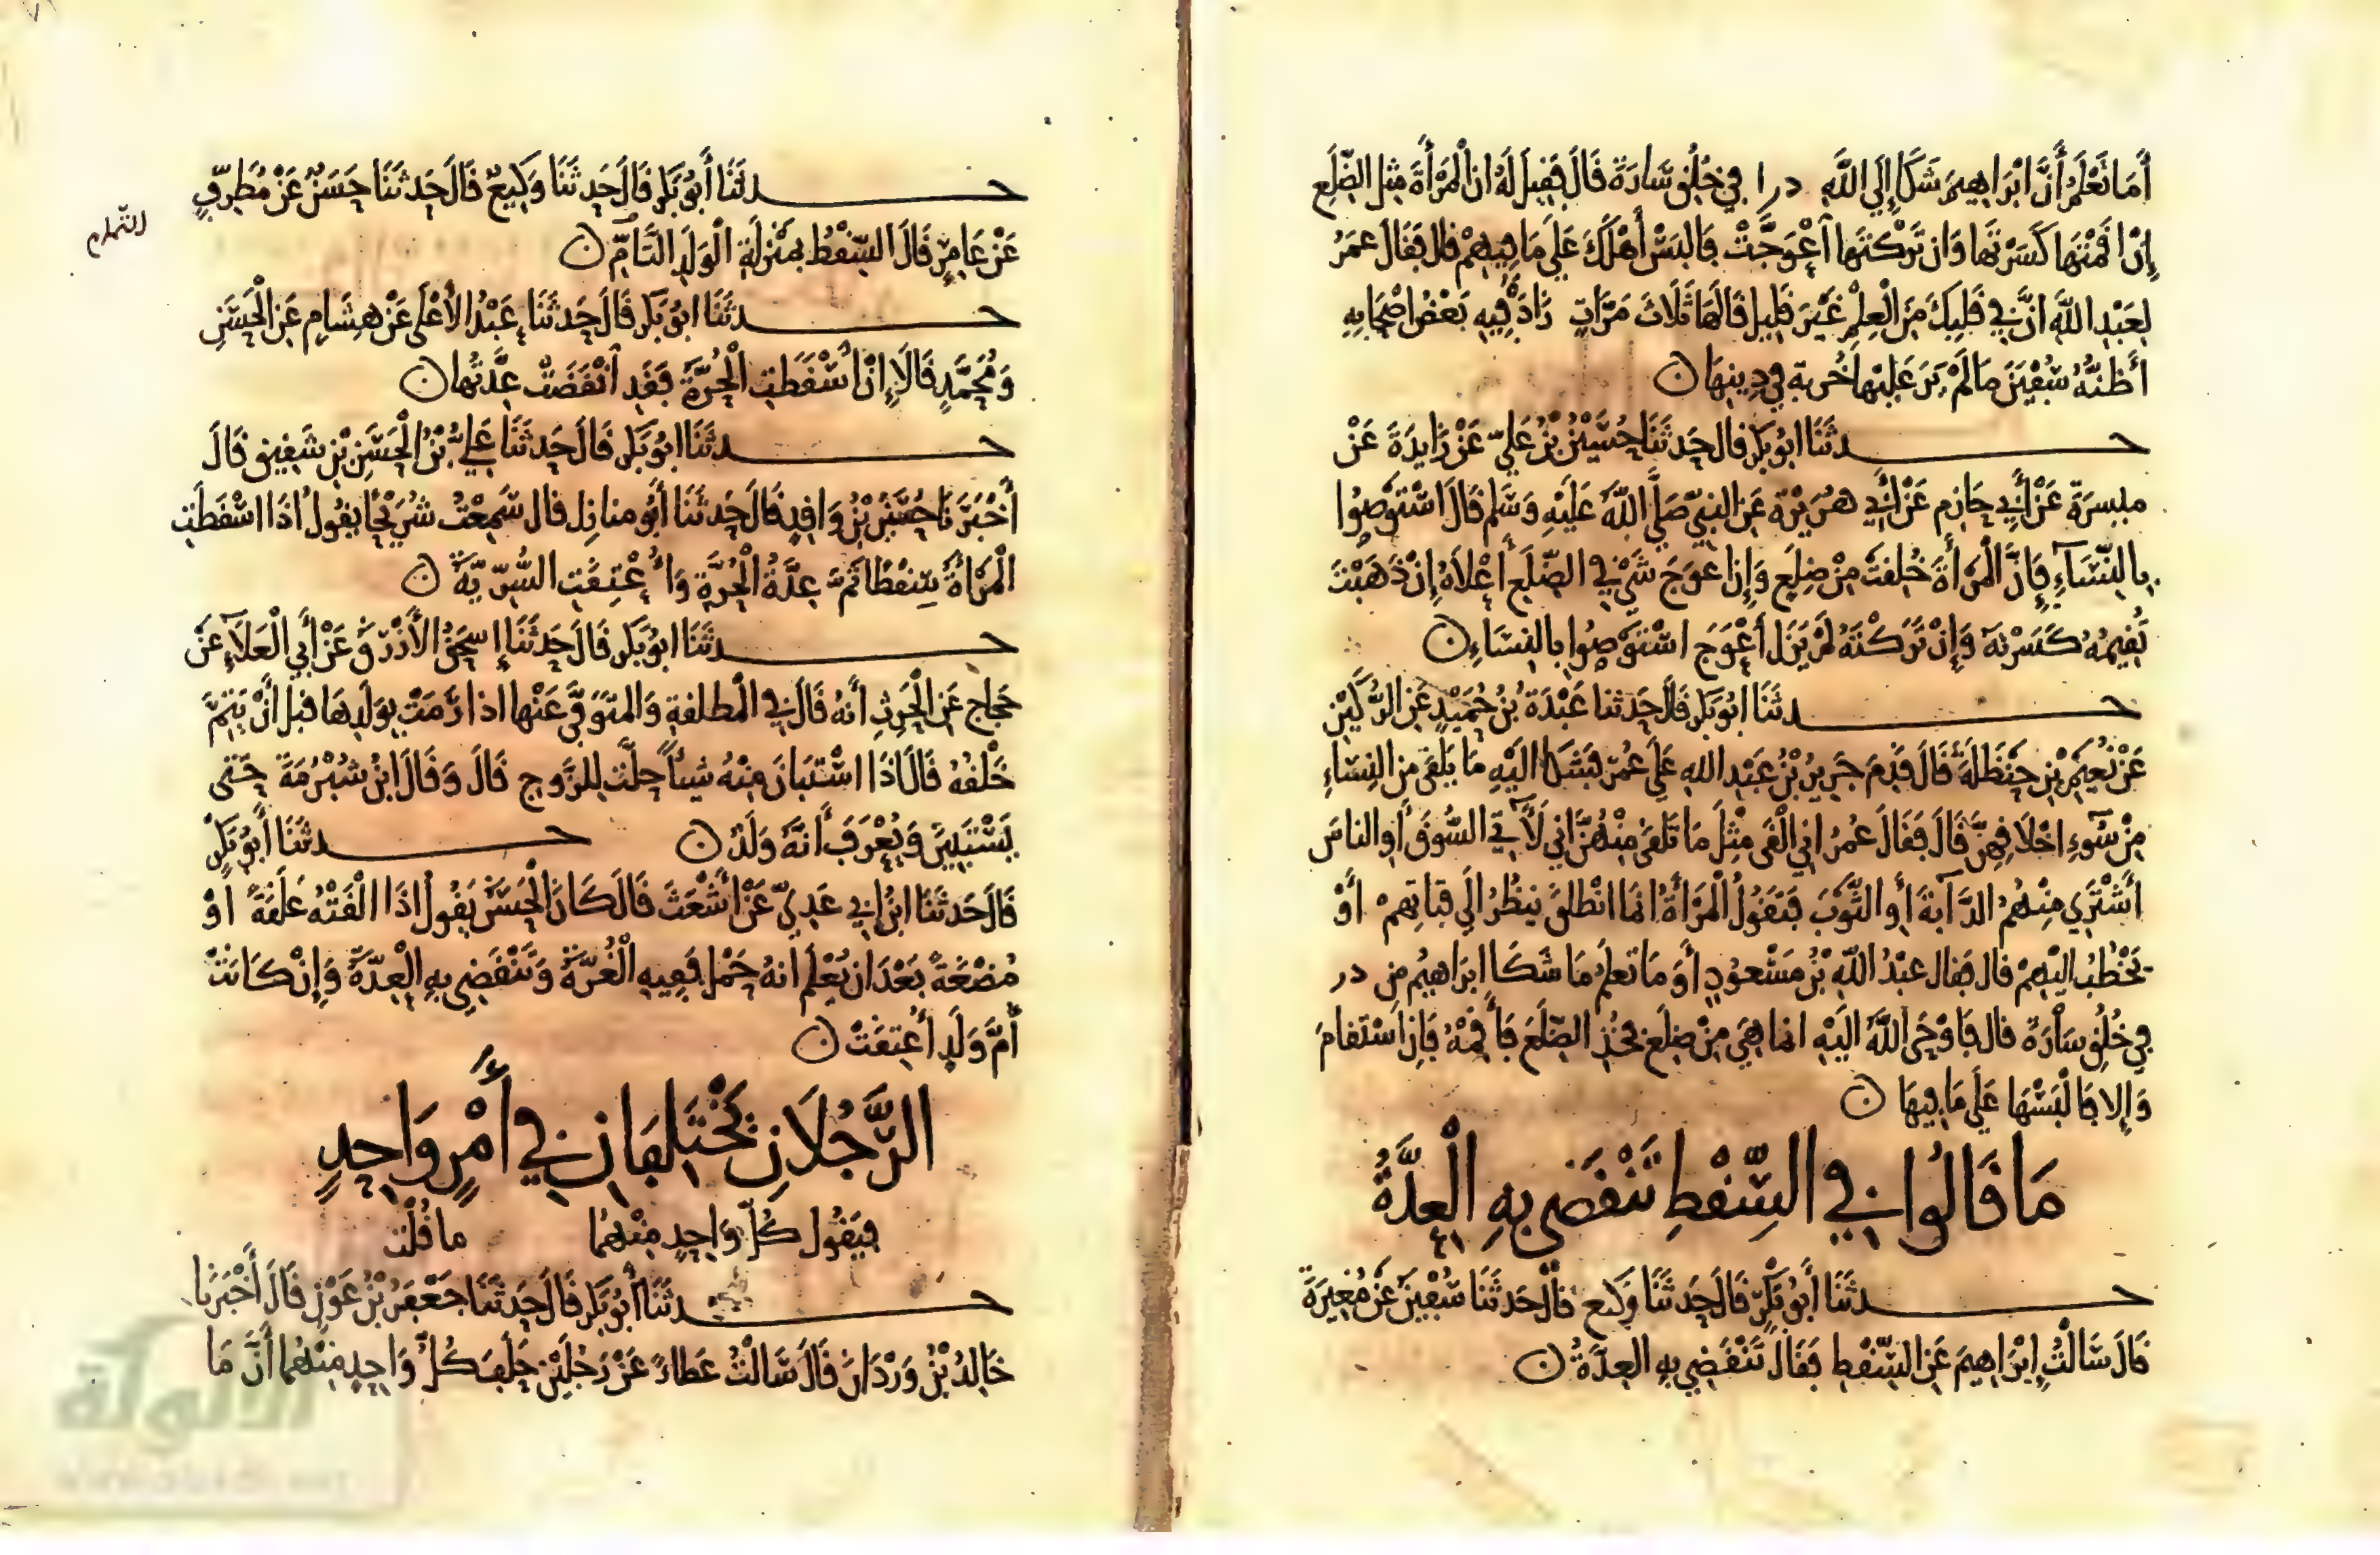 أَمَا تَعْلَمُ أَنَّ ابْرَاهِيمَ شَكَا إِلَي اللَّهِ درا في خُلُقِ سَارَةَ قَالَ فَقِيلَ لَهُ ان الْمَرْأَةَ مِثل الضِّلَعِ
إِنْ اقَمْتَهَا كَسَرْتَهَا وَان تَرَكْتَهَا اعْوَجَّتْ فَالبَسْ أَهْلَكَ عَلَي مَا فِيهِمْ قال فَقَالَ عمَرُ
لِعَبْدِ اللَّهِ انَّ فِي قَلبِكَ مِنَ الْعِلْمِ غَيْرَ قَلِيلٍ قَالَهَا ثَلَاثَ مَرَّاتٍ زَادَ فِيهِ بَعْضُ اصْحَابِهِ
أَظُنُّهُ سُفْيَنَ مَا لَمْ يَرَ عَلَيْهَا خُربة فِي دِينِهَا ن
حدثَنَا ابُو بَكر قال حَدثَنَا حُسَيْنُ بْنُ عَليّ عَنْ زَايدَةَ عَنْ
ميسرَةَ عَنْ أَبِي حَازِم عَنْ أَبِي هُرَيْرَة عَنِ النبيّ صَلَّي اللَّهُ عَلَيْهِ وَسَلم قَالَ اسْتَوْصُوا
بِالنِّسَآءِ فَإِنَّ الْمَرْأَةَ خُلقتْ مِنْ ضِلَعٍ وَإِن اعوَجَ شَيْ فِي الضِّلَعِ أَعْلَاهُ إِنْ ذَهَبْتَ
تُقِيمُهُ كَسَرْتَهُ وَإِنْ تَرَكْتَهُ لَمْ يَزَل أَعْوَجَ اسْتَوْصُوا بِالنِسَاءِ ن
حدثَنَا ابُو بَكر قَالَ حَدثنا عَبْدَة بْنُ حُمَيْدٍ عَنِ الرُّكَيْنِ
عَنْ نُعَيْمِ بْنِ حَنْظَلَةَ قَالَ قَدِمَ جَرِيرُ بْنُ عَبْدِ اللهِ عَلَي عُمَرَ فَشَكَا الَيْهِ مَا يَلْقَى مِنَ النِسَاءِ
مِنْ سَوءِ اخْلَاقِهِنَّ قَالَ فَقَالَ عُمَرُ اني الْقَى مِثْلَ مَا تَلقَى مِنْهُنَّ اني لَآتي السُّوقَ أَو الناسَ
أَشْتَرِي مِنْهُمُ الدَّآبَةَ أَو الثَّوْبَ فَتَقُولُ الْمَرْأَةُ انمَا انْطلقَ ينظُرُ الَي فتَاتِهِمْ أَوْ
يَخْطُبُ اليْهِمْ قال فَقال عبْدُ اللَّهِ بْنُ مَسْعُودٍ أَوَ مَا تَعلَمُ مَا شَكَا ابرَاهِيمُ مِن در
في خُلُقِ سَارَةَ قال فَاوْحَى اللَّهُ الَيْهِ انما هِيَ مِنْ ضِلَعٍ فَخُذِ الضِّلَعَ فَأَقِمْهُ فَإِن اسْتَقَامَ
وَإِلا فَالْبَسْهَا عَلَى مَا فِيهَا ن
مَا قَالُوا فِي السِّقْطِ تَنْقَضِي بِهِ الْعِدَّةُ
حدثَنَا أَبُو بَكْرٍ قَالَ حَدثَنَا وَكِيع قَالَ حَدثَنَا سُفْيَنُ عَنْ مُغِيرَةَ
قَالَ سَالْتُ إِبْرَاهِيمَ عَنِ السِّقْطِ فَقَالَ تَنْقَضِي بِهِ العِدَّةُ ن
حدثَنَا أَبُو بَكر قَالَ حَدثَنَا وَكِيعٌ قَالَ حَدثَنَا حَسَنٌ عَنْ مُطَرِّفٍ
عَنْ عَامِرٍ قَالَ السِّقْطُ بِمَنْزِلَةِ الْوَلَدِ التَّامِّ ن
حدثَنَا ابُو بَكر قَالَ حَدثَنَا عَبْدُ الأَعْلَى عَنْ هِشَامٍ عَنِ الْحَسَنِ
وَمُحَمَّدٍ قَالَا إِنْ أَسْقَطَتِ الْحُرَّةُ فَقَدِ انْقَضَتْ عِدَّتُهَا ن
حدثَنَا ابُو بَكر قَالَ حَدثَنَا عَلِيُّ بْنُ الْحَسَنِ بْنِ شَقِيقٍ قَالَ
أَخْبَرَنَا حُسَيْنُ بْنُ وَاقِدٍ قَالَ حَدثَنَا أَبُو منازِل قال سَمِعْتُ شُرَيْحًا يقُولُ اذَا اسْقَطَتِ
الْمَرْأَةُ سِقْطًا ثَمَّ عِدَّةُ الْحُرَّةِ وَأُعْتِقَتِ السُّرِّيَّةُ ن
حدثَنَا ابُو بَكر قَالَ حَدثَنَا إِسحَقُ الأَزْرَقُ عَنْ أَبِي الْعَلَآءِ عَنْ
حَجاج عَنِ الْحَرِثِ أَنهُ قَالَ فِي الْمطلقةِ وَالمتَوَفَّى عَنْهَا اذا رَمَتْ بِوَلَدِهَا قبل أَنْ يَتِمَّ
خَلْقُهُ قَالَ اذَا اسْتَبَانَ مِنْهُ شيأً حلَّت لِلزَّوج قَالَ وَقَالَ ابْنُ شُبْرُمَةَ حَتى
يَسْتَبِينَ وَيُعْرَفَ أَنَّهُ وَلَدٌ ن حدثَنَا أَبُو بَكرٍ
قَالَ حَدثَنَا ابْنُ ابِي عَدِيّ عَنْ أَشْعَثَ قَالَ كَانَ الْحَسَنُ يَقُولُ اذَا الْقَتْهُ عَلَقَةً اوْ
مُضْغَةً بَعْدَ ان يُعْلَمَ انهُ حَمْل فَفِيهِ الْغُرَّةُ وَتَنْقَضِي بِهِ الْعِدَّةُ وَإِنْ كَانَتْ
أُمَّ وَلَدٍ أُعْتِقَتْ ن
الرَّجُلَانِ يَخْتَلِفَانِ فِي أَمْرٍ وَاحِدٍ
فيَقُول كُلّ وَاحِدٍ مِنْهُمَا ما قُلْت
حدثَنَا أَبُو بَكر قَالَ حَدثَنَا جَعْفَرُ بْنُ عَوْنٍ قَالَ أَخْبَرَنَا
خَالِدُ بْنُ وَرْدَانَ قَالَ سَالْتُ عَطاءً عَنْ رَجُلَيْنِ حَلَفَ كُلُّ وَاحِدٍ مِنْهُمَا أَنَّ مَا
الألوكة